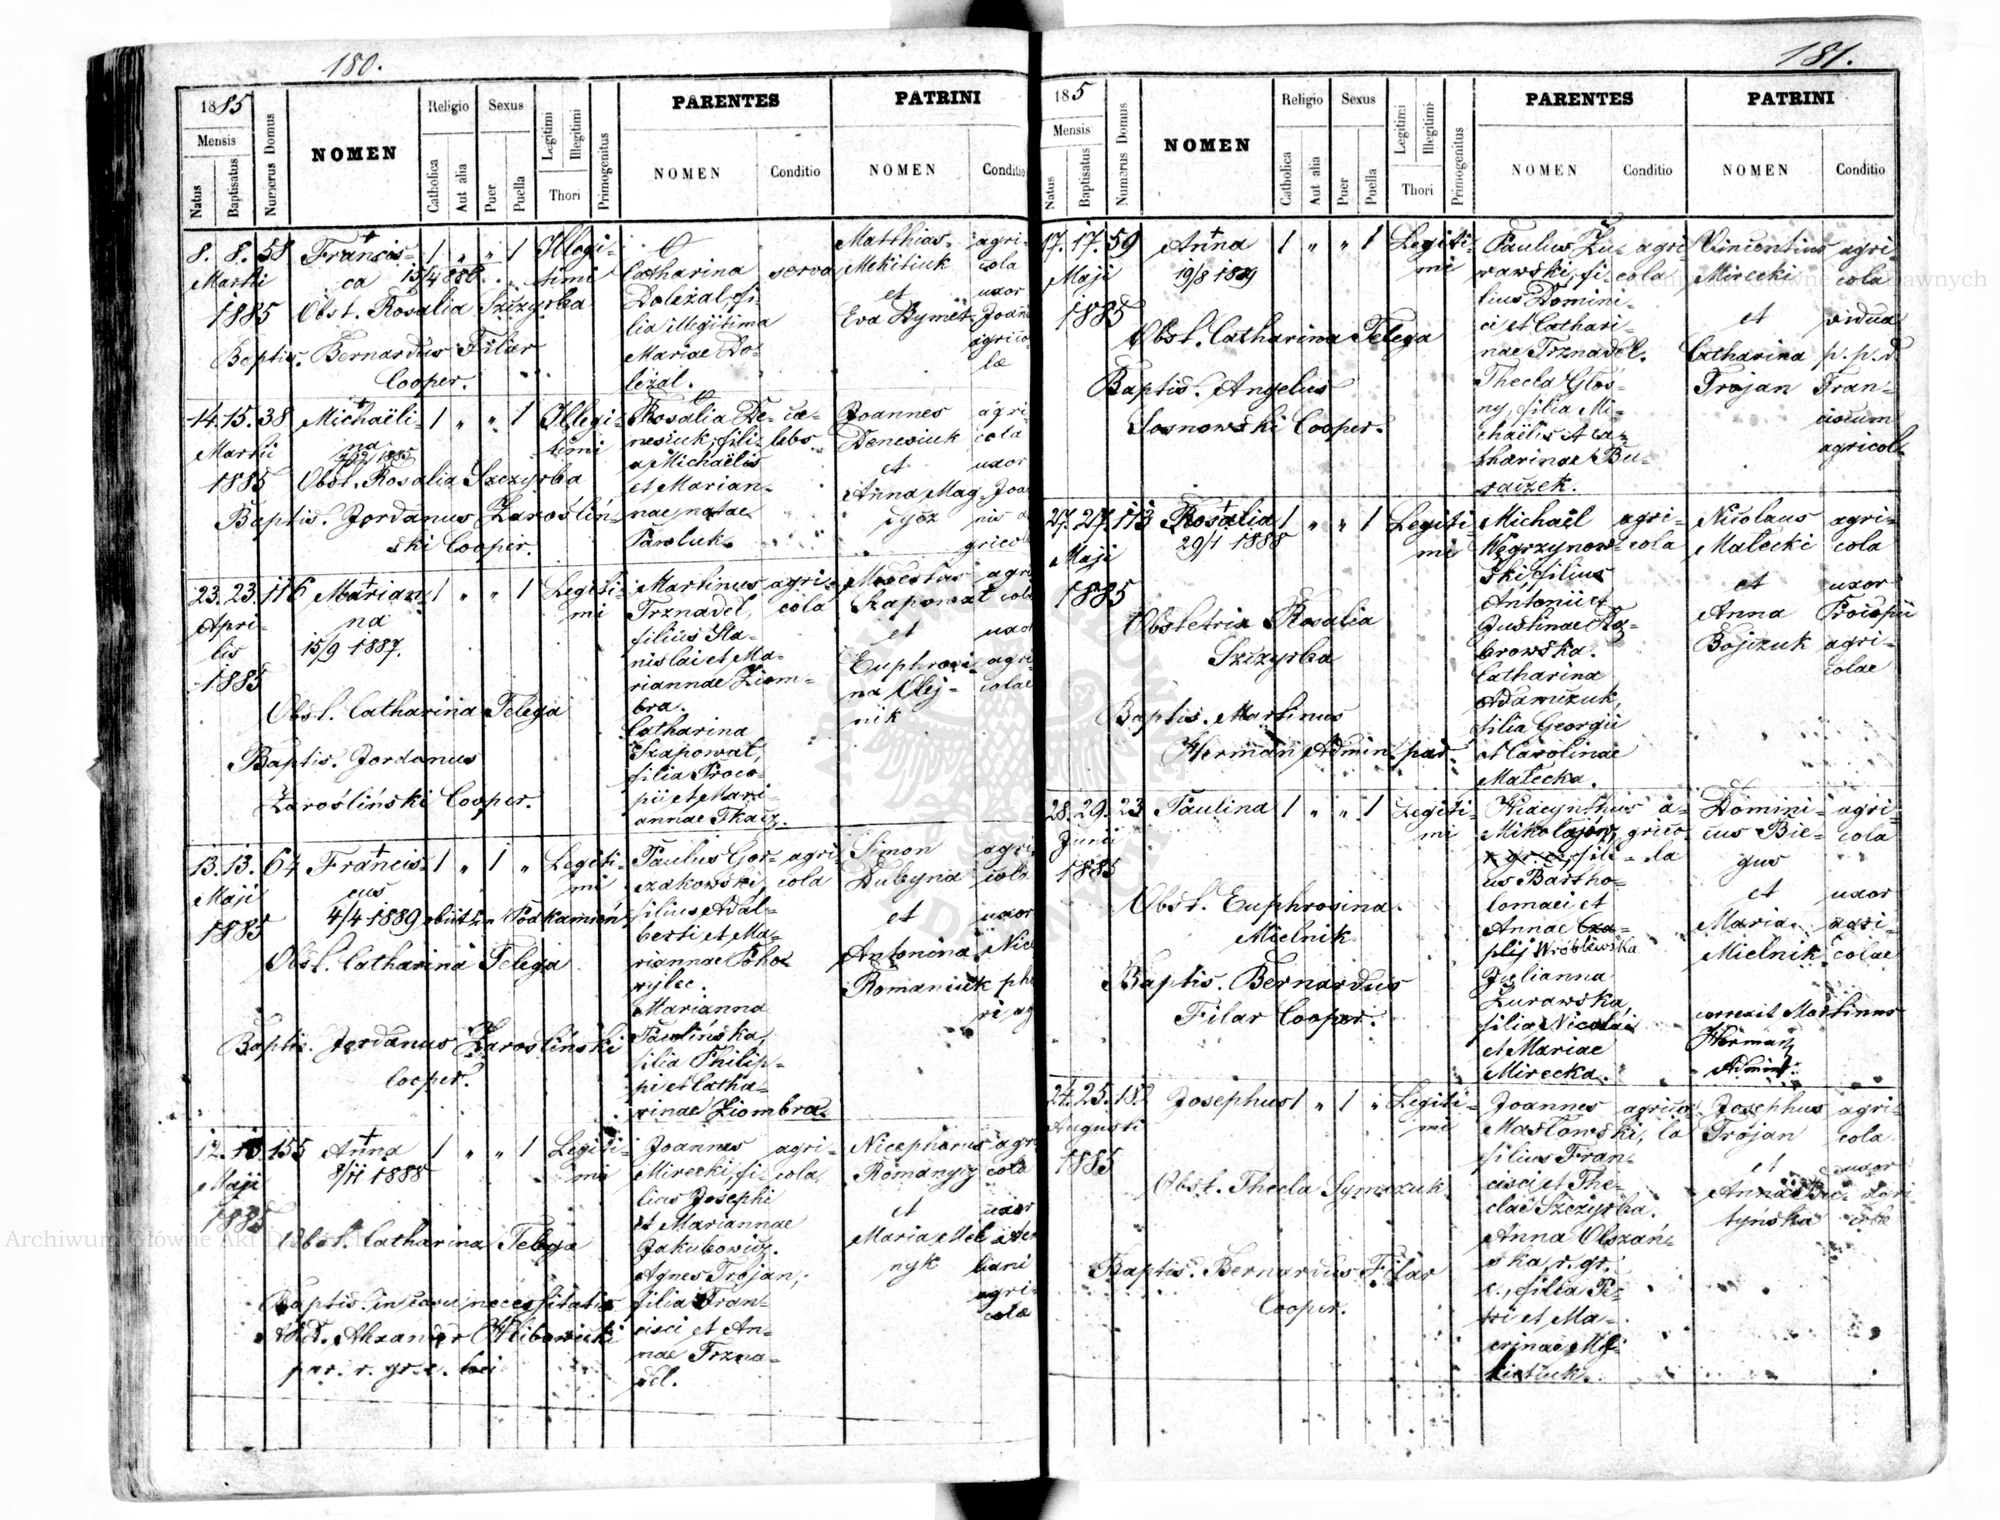 180.
1885
Mensis
Natus
Baptisatus
Numerus Domus
NOMEN
Religio
Catholica
Aut alia
Sexus
Puer
Puella
Legitimi
Illegitimi
Thori
Primogenitus
PARENTES
NOMEN
Conditio
PATRINI
NOMEN
Conditio
8. 8. 58
Martii
1885
Francis-
ca
Obst. Rosalia Szczyrba
Baptis. Bernardus Filar
Cooper.
1 " " 1
Illegi-
timi
Catharina
Doležal, fi-
lia illegitima
Mariae Do-
ležal.
serva
Matthias
Mekitiuk
et
Eva Bymet
agri-
cola
uxor
Joan
agrico
lae
14. 15. 38
Martii
1885
Michaëli-
na
Obst. Rosalia Szczyrba
Baptis. Jordanus Zarośliń-
ski Cooper.
1 " " 1
Illegi-
timi
Rosalia De-
nesiuk, fili-
a Michaëlis
et Marian-
nae natae
Pawluk.
cae-
lebs
Joannes
Denesiuk
et
Anna Mag-
dycz
agri-
cola
uxor
Joan
nis a
gricol
23. 23. 116
Apri-
lis
1885
Marian-
na
15/9 1887.
Obst. Catharina Telega
Baptis. Jordanus
Zarośliński Cooper.
1 " " 1
Legiti-
mi
Martinus
Trznadel,
filius Sta-
nislai et Ma-
riannae Ziom-
bra.
Catharina
Szapował,
filia Proco-
pii et Mari-
annae Tkacz.
agri-
cola
Modestus
Szapował
et
Euphrosi-
na Olej-
nik
agri
cola
uxor
agri
colae
13. 13. 64
Maji
1885
Francis-
cus
4/4 1889 obiit in Podkamień
Obst. Catharina Telega
Baptis. Jordanus Zarośliński
Cooper.
1 " 1 "
Legiti-
mi
Paulus Gor-
czakowski,
filius Adal-
berti et Ma-
riannae Poho-
rylec.
Marianna
Pawlińska,
filia Philip-
pi et Catha-
rinae Ziombra.
agri
cola
Simon
Dubyna
et
Antonina
Romaniuk
agri
cola
uxor
Nice
pho
ri, ag
12. 13. 155
Maji
1885
Anna
8/11 1888
Obst. Catharina Telega
Baptis. in casu necessitatis
par. r. gr. c. loci
1 " " 1
Legiti-
mi
Joannes
Mirecki, fi-
lius Josephi
et Mariannae
Jakubowicz.
Agnes Trojan,
filia Fran-
cisci et An-
nae Trzna-
del.
agri-
cola
Nicephorus
Romanycz
et
Maria Mel-
nyk
agri
cola
uxor
liani
agri-
colae
181.
1885
Mensis
Natus
Baptisatus
Numerus Domus
NOMEN
Religio
Catholica
Aut alia
Sexus
Puer
Puella
Legitimi
Illegitimi
Thori
Primogenitus
PARENTES
NOMEN
Conditio
PATRINI
NOMEN
Conditio
17. 17. 59
Maji
1885
Anna
Obst. Catharina Telega
Baptis. Angelus
Sosnowski Cooper.
1 " " 1
Legiti-
mi
Paulus Żu-
rawski, fi-
lius Domini-
ci et Cathari-
nae Trznadel.
Thecla Głoś-
ny, filia Mi-
chaëlis et Ca-
tharinae Bu-
raczek.
agri-
cola
Vincentius
Mirecki
et
Catharina
Trojan
agri-
cola
vidua
p. p. d.
Fran-
ciscum
agricol-
27. 27. 113
Maji
1885
Rosalia
29/1 1888
Obstetrix Rosalia
Szczyrba
Baptis. Martinus
Herman, Admin. par.
1 " " 1
Legiti-
mi
Michaël
Węgrzynow-
ski, filius
Antonii et
Justinae Dą-
browska.
Catharina
Adamczuk,
filia Georgii
et Carolinae
Małecka.
agri-
cola
Nicolaus
Małecki
et
Anna
Bojczuk
agri-
cola
uxor
Procopii
agri-
colae
28. 29. 23
Junii
1885
Paulina
Obst. Euphrosina
Mielnik
Baptis. Bernardus
Filar Cooper.
1 " " 1
Legiti-
mi
Hiacynthus
Mikołajów,
r. gr. c., fili-
us Bartho-
lomaei et
Annae Cza-
plij Wróblewska
Julianna
Żurawska,
filia Nicolai
et Mariae
Mirecka.
a-
grico-
la
Domini-
cus Bie-
gus
et
Maria
Mielnik
agri-
cola
uxor
agri-
colae
correxit Martinus
Herman
Admin.
24. 25. 182
Augusti
1885
Josephus
Obst. Thecla Symczuk
Baptis. Bernardus Filar
Cooper.
1 " 1 "
Legiti-
mi
Joannes
Masłowski,
filius Fran-
cisci et The-
clae Szczyrba.
Anna Olszań-
ska, r. gr.
c., filia Pe-
tri et Ma-
crinae Me-
kietiuk.
agrico-
la
Josephus
Trojan
et
agri-
cola
uxor
agri-
colae
Archiwum Główne Akt Dawnych